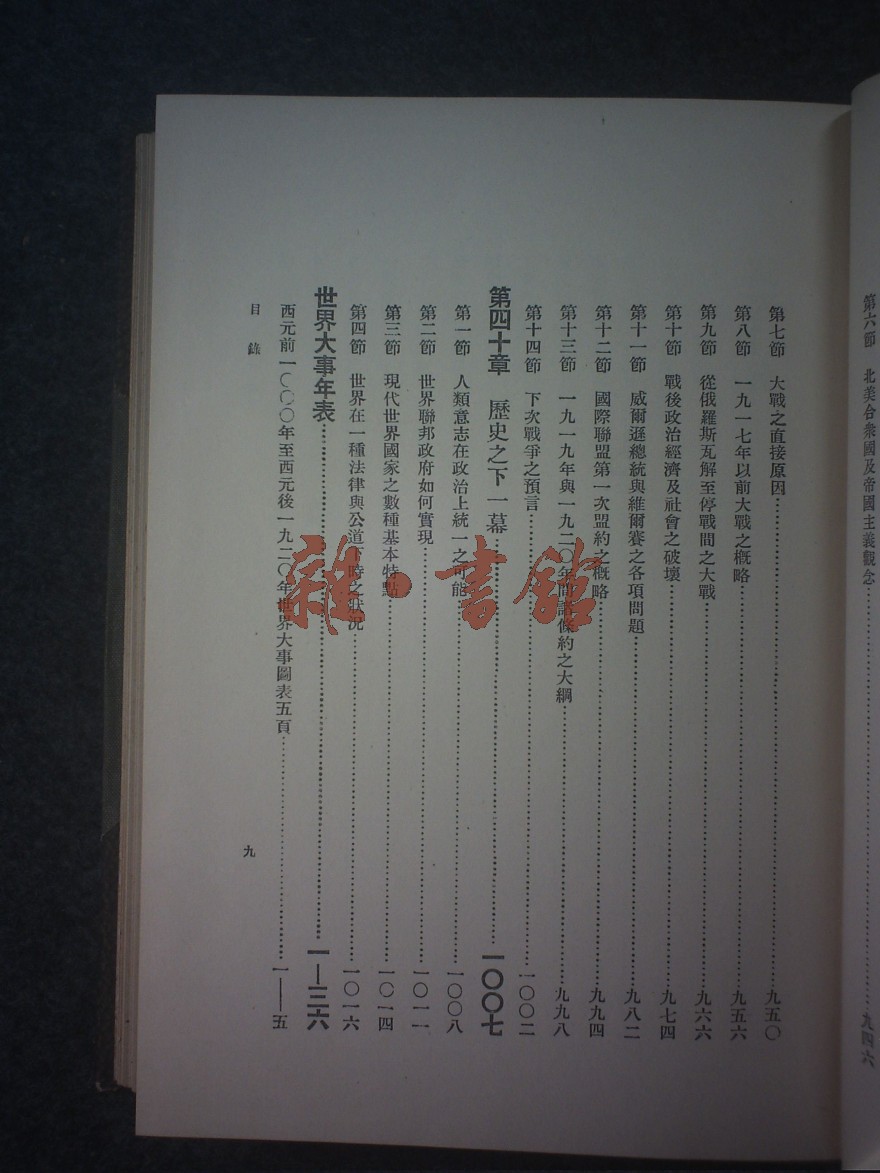 第六節　北美合衆國及帝國主義觀念……九四六
第七節　大戰之直接原因……九五〇
第八節　一九一七年以前大戰之概略……九五六
第九節　從俄羅斯瓦解至停戰間之大戰……九六六
第十節　戰後政治經濟及社會之破壞……九七四
第十一節　威爾遜總統與維爾賽之各項問題……九八二
第十二節　國際聯盟第一次盟約之概略……九九四
第十三節　一九一九年與一九二〇年間諸條約之大綱……九九八
第十四節　下次戰爭之預言……一〇〇二
第四十章　歷史之下一幕……一〇〇七
第一節　人類意志在政治上統一之可能……一〇〇八
第二節　世界聯邦政府如何實現……一〇一一
第三節　現代世界國家之數種基本特點……一〇一四
第四節　世界在一種法律與公道下時之狀況……一〇一六
世界大事年表……一—三六
西元前一〇〇〇年至西元後一九二〇年世界大事圖表五頁……一——五
目錄　九
雜·書館